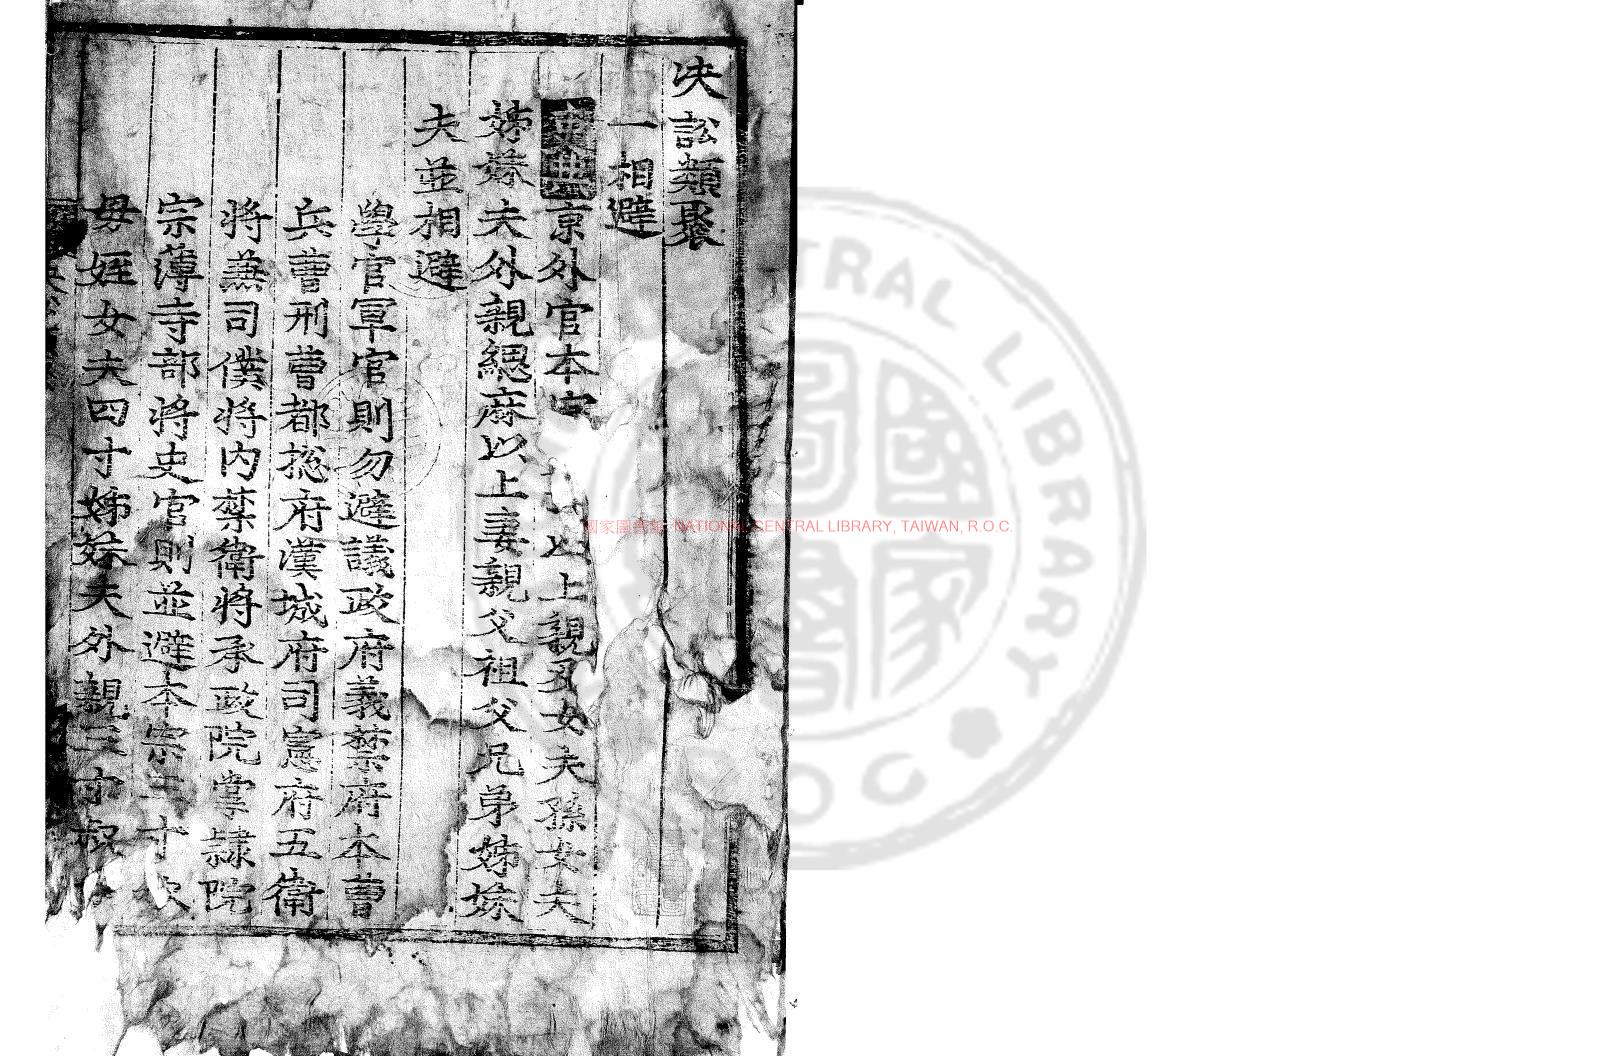 决訟類聚
一相避
典京外官本宗以上親及女夫孫女夫
姊妹夫外親緦麻以上妻親父祖父兄弟姊妹
夫並相避
學官軍官則勿避議政府義禁府本曹
兵曹刑曹都摠府漢城府司憲府五衛
將兼司僕將內禁衛將承政院掌隸院
宗簿寺部將史官則並避本宗三寸叔
母姪女夫四寸姊妹夫外親三寸叔
國家圖書館 NATIONAL CENTRAL LIBRARY, TAIWAN, R.O.C.
CENTRAL LIBRARY
ROC
國家